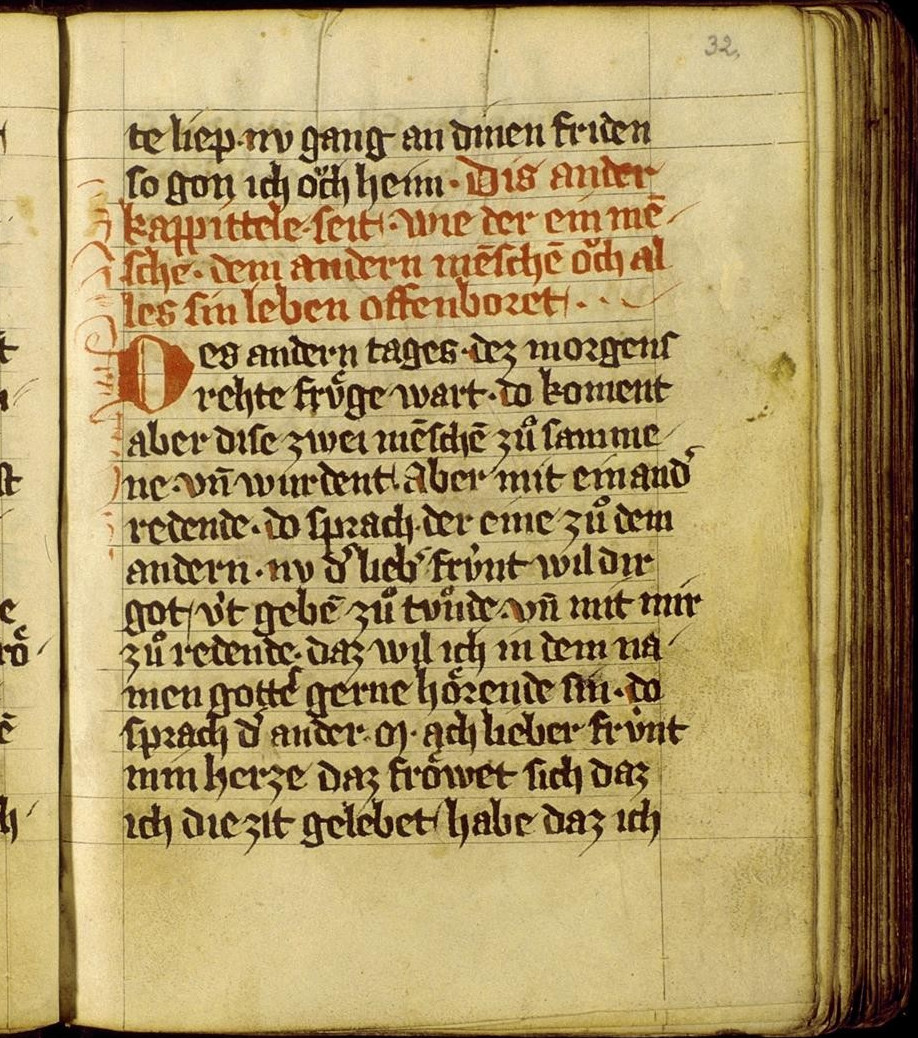 32.
te liep · nv gang an dinen friden
so gon ich oͮch heim · Dis ander
kappittele · seit · wie der ein mē
sche · dem andern mēschē oͮch al
les sin leben offenboret · . .
Des andern tages · dez morgens
rehte fruͤge wart · do koment
aber dise zwei mēschē zuͦ samme
ne · vn̄ wurdent Aber mit einand͛
redende · do sprach · der eine zuͦ dem
andern · nv d͛ lieb͛ frv́nt wil dir
got v́t gebē zuͦ tuͦnde · vn̄ mit mir
zuͦ redende · daz wil ich in dem na
men gotte͛ gerne hoͤrende sin · do
sprach d͛ ander · M · ach lieber frv́nt
min herze daz froͤwet sich daz
ich die zit gelebet habe daz ich